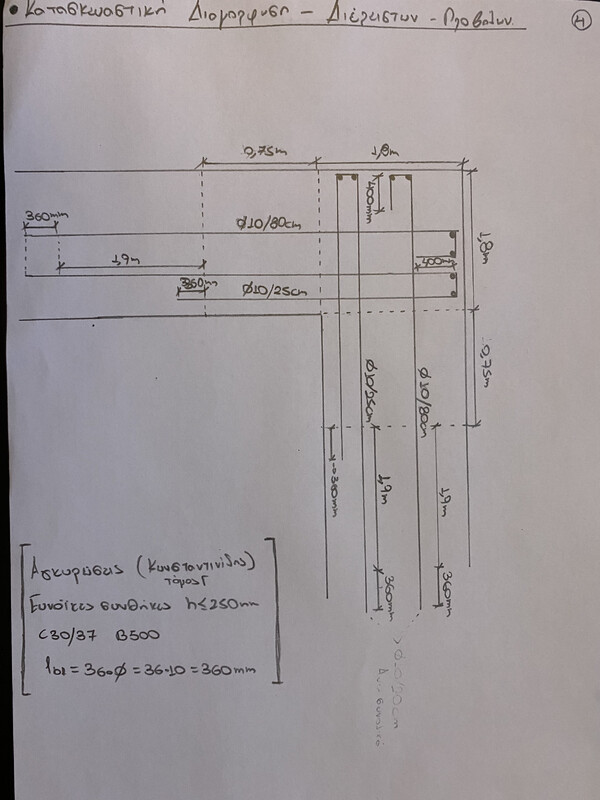 • Κατασκευαστική Διαμόρφωση - Διέρειστων - Προβόλων. 4
0,75m
1,8m
400mm
360mm
Φ10/80cm
1,8m
1,9m
400mm
360mm
Φ10/25cm
0,75m
Φ10/25cm
Φ10/80cm
360mm
1,9m
1,9m
360mm
360mm
Αγκυρώσεις (Κωνσταντινίδης)
τόμος Γ
Ευνοϊκές συνθήκες h≤250mm
C30/37 B500
lbl = 36·Φ = 36·10 = 360mm